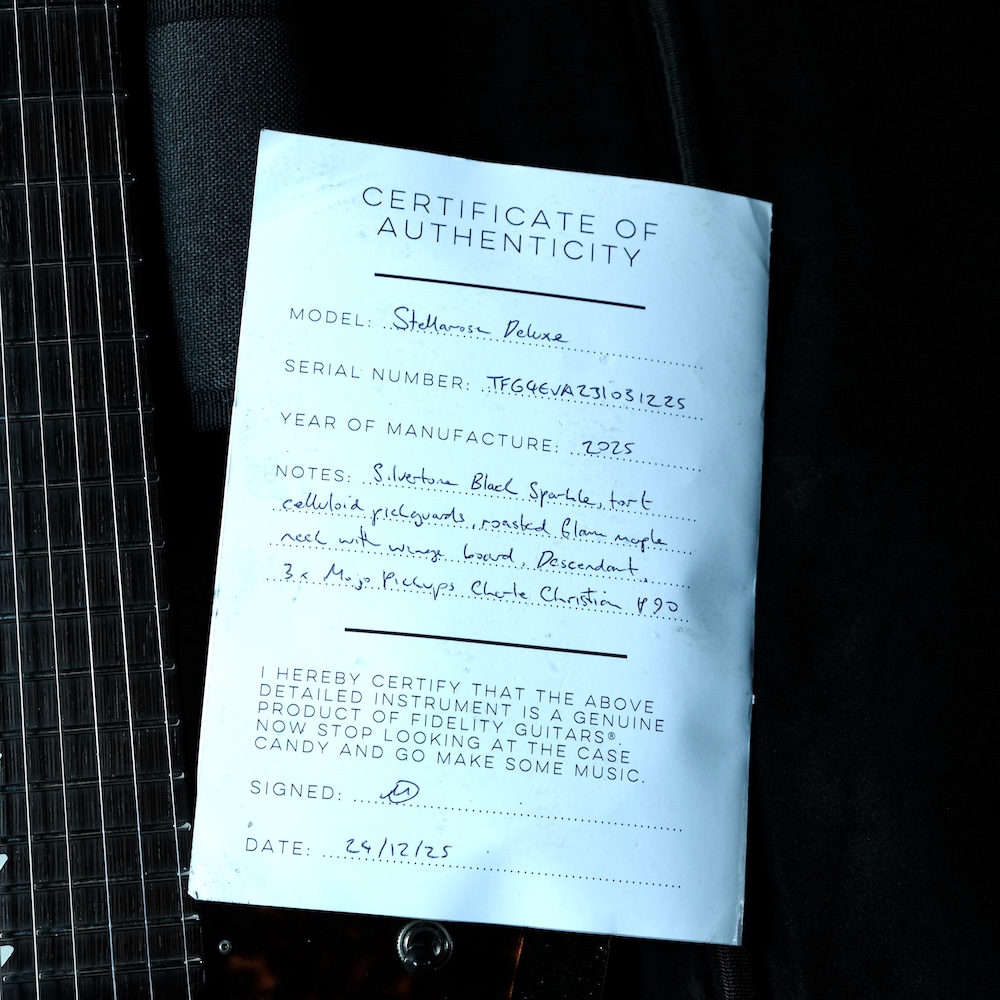 CERTIFICATE OF
AUTHENTICITY
MODEL: Stellarosa Deluxe
SERIAL NUMBER: TFG4EVA231031225
YEAR OF MANUFACTURE: 2025
NOTES: Silvertone Black Sparkle, tort
celluloid pickguards, roasted flame maple
neck with wenge board, Descendant,
3x Mojo Pickups Charlie Christian P90
I HEREBY CERTIFY THAT THE ABOVE
DETAILED INSTRUMENT IS A GENUINE
PRODUCT OF FIDELITY GUITARS®.
NOW STOP LOOKING AT THE CASE
CANDY AND GO MAKE SOME MUSIC.
SIGNED:
DATE: 24/12/25